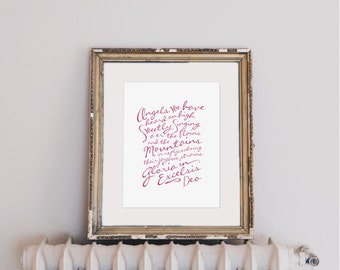 Angels we have
heard on high
Sweetly Singing
o'er the Plains
and the
Mountains
in reply echoing
their joyous strains
Gloria in
Excelsis
Deo